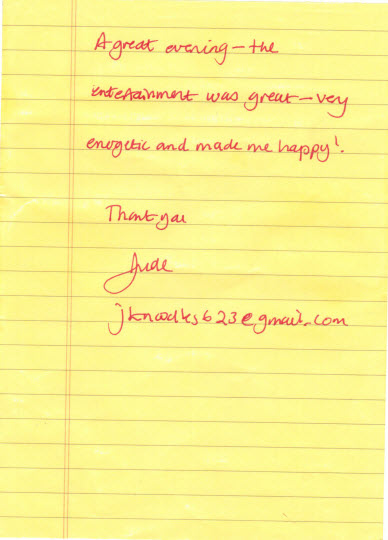 A great evening – the
entertainment was great – very
energetic and made me happy!
Thank you
Jude
jknoodles623@gmail.com